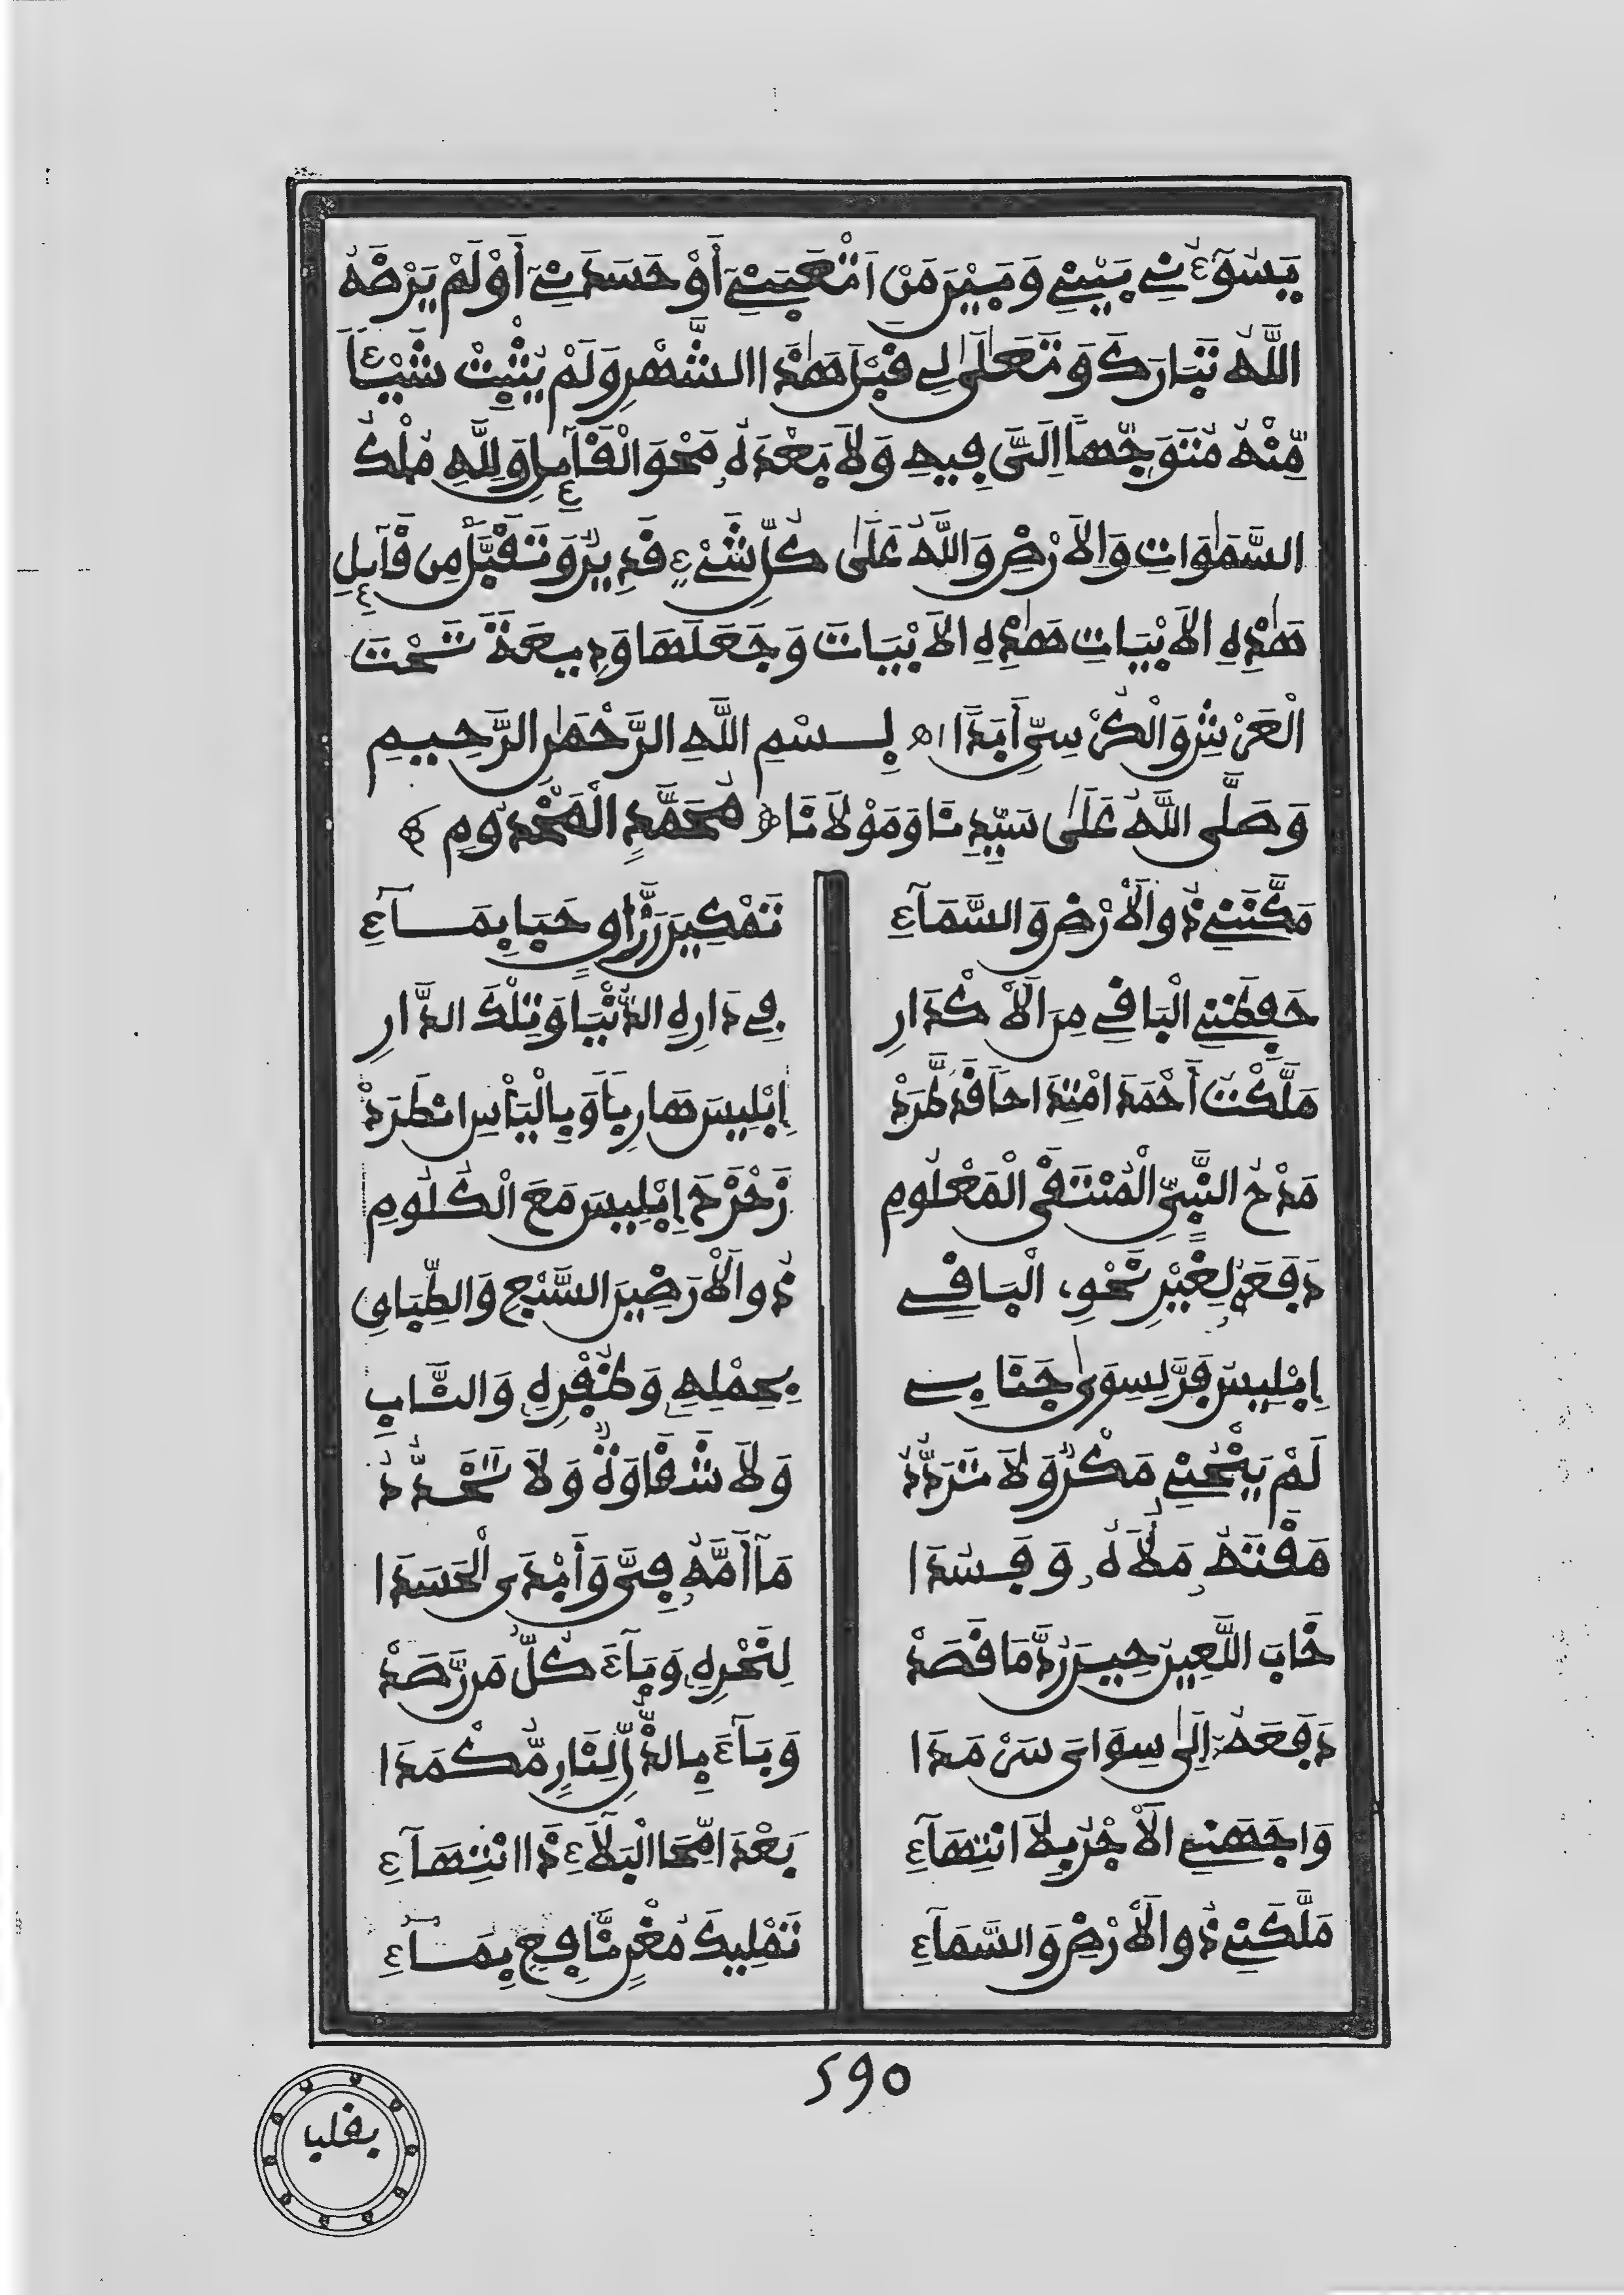 يَسُوٓءُنِے بَيْنِے وَبَيْنَ مَنْ اَتْعَبَنِےٓ أَوْ حَسَدَنِےٓ أَوْ لَمْ يَرْضَهُ
اللَّهُ تَبَارَكَ وَتَعَالَىٰ لِے قَبْلَ هَٰذَا الشَّهْرِ وَلَمْ يُثْبِتْ شَيْـًٔا
مِّنْهُ مُتَوَجِّهًا اِلَىَّ فِيهِ وَلَا بَعْدَهُۥ مَحْوَ الْقَآئِلِ وَلِلَّهِ مُلْكُ
السَّمَٰوَاتِ وَالَارْضِ وَاللَّهُ عَلَىٰ كُلِّ شَےْءٍ قَدِيرٌ وَتَقَبَّلْ مِن قَآئِلِ
هَٰذِهِ الَابْيَاتِ هَٰذِهِ الَابْيَاتَ وَجَعَلَهَا وَدِيعَةً تَحْتَ
الْعَرْشِ وَالْكُرْسِىِّ أَبَدًا اه بِسْمِ اللَّهِ الرَّحْمَٰنِ الرَّحِيمِ
وَصَلَّى اللَّهُ عَلَىٰ سَيِّدِنَا وَمَوْلَانَا مُحَمَّدٍ الْمَخْدُومِ
مَكَّنَنِے ذُو الْأَرْضِ وَالسَّمَآءِ تَمْكِينَ رَزَّاقٍ حَبَا بِمَآءِ
حَفِظَنِے الْبَاقِے مِنَ الْأَكْدَارِ فِے دَارِهِ الدُّنْيَا وَتِلْكَ الدَّارِ
مَلَّكْتُ أَحْمَدَ امْتِدَاحًا قَد طَّرَدْ إِبْلِيسَ هَارِبًا وَبِالْيَأْسِ انطَرَدْ
مَدْحُ النَّبِىِّ الْمُنْتَقَى الْمَعْلُومِ زَحْزَحَ إِبْلِيسَ مَعَ الْكُلُومِ
دَفَعَهُۥ لِغَيْرِ نَحْوِى الْبَاقِے ذُو الْأَرَضِينَ السَّبْعِ وَالطِّبَاقِ
إِبْلِيسُ فَرَّ لِسِوَىٰ جَنَابِے بِحِمْلِهِ وَظُفْرِهِ وَالنَّابِ
لَمْ يَنْحُنِے مَكْرٌ وَلَا تَرَدُّدُ وَلَا شَقَاوَةٌ وَلَا تَحَدُّدُ
مَقْتَهُۥ مَلَأَهُۥ وَفَسَدَا مَآ أَمَّهُۥ فِىَّ وَأَبْدَى الْحَسَدَا
خَابَ اللَّعِينُ حِينَ رُدَّ مَا قَصَدْ لِنَحْرِهِ وَبَآءَ كُلُّ مَن رَّصَدْ
دَفَعَهُۥٓ إِلَىٰ سِوَاىَ سَرْمَدَا وَبَآءَ بِالذُّلِّ لِنَارٍ مُّكْمَدَا
وَاجَهَنِے الْأَجْرُ بِلَا انْتِهَآءِ بَعْدَ امِّحَا الْبَلَآءِ ذَا انْتِهَآءِ
مَلَّكَنِے ذُو الْأَرْضِ وَالسَّمَآءِ تَمْلِيكَ مُغْرِ نَّافِعٍ بِمَآءِ
590
بفلبا